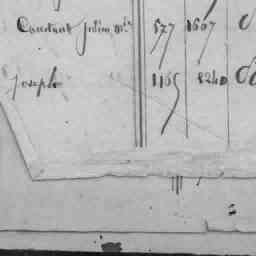 Constant julien m.d 577 1607
Joseph 1165 8240